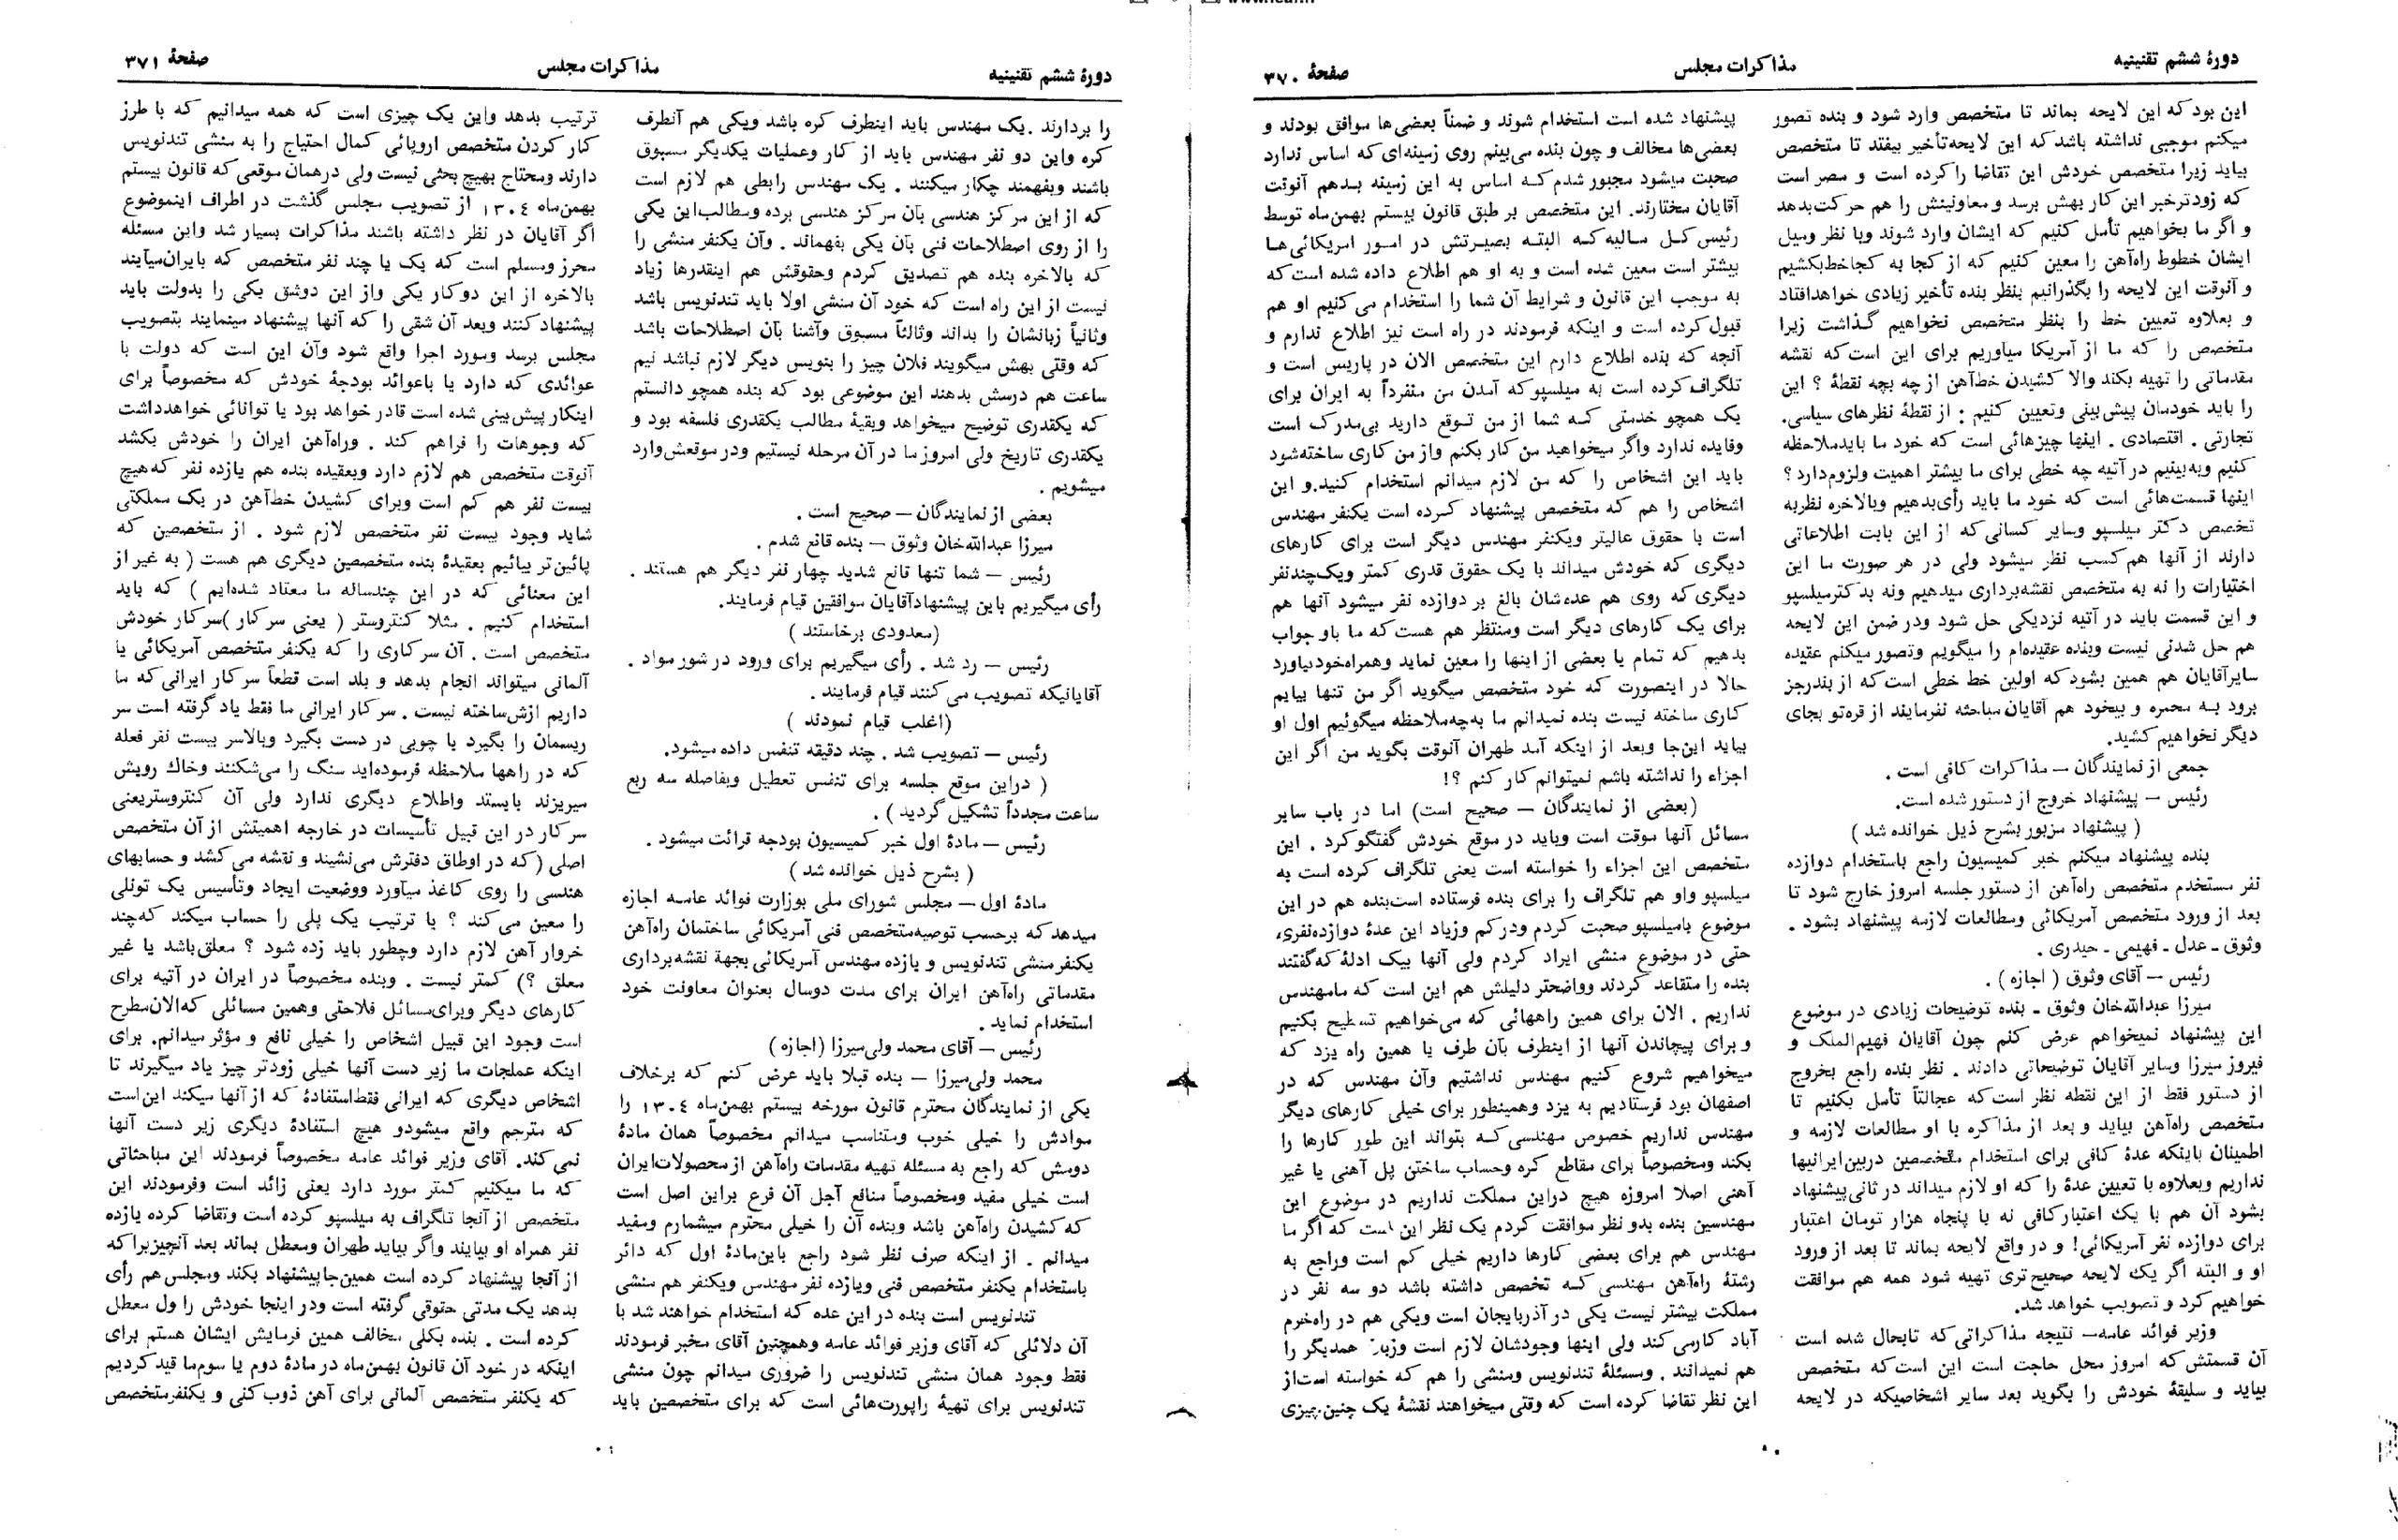 دورهٔ ششم تقنینیه
مذاکرات مجلس
صفحهٔ ۳۷۰
این بود که این لایحه بماند تا متخصص وارد شود و بنده تصور
میکنم موجبی نداشته باشد که این لایحه تأخیر بیفتد تا متخصص
بیاید زیرا متخصص خودش این تقاضا را کرده است و مصر است
که زودتر خبر این کار بهش برسد و معاونینش را هم حرکت بدهد
و اگر ما بخواهیم تأمل کنیم که ایشان وارد شوند و با نظر و میل
ایشان خطوط راه‌آهن را معین کنیم که از کجا به کجا خط بکشیم
و آنوقت این لایحه را بگذرانیم بنظر بنده تأخیر زیادی خواهد افتاد
و بعلاوه تعیین خط را بنظر متخصص نخواهیم گذاشت زیرا
متخصص را که ما از آمریکا میاوریم برای این است که نقشه
مقدماتی را تهیه بکند والا کشیدن خط‌آهن از چه بچه نقطهٔ ؟ این
را باید خودمان پیش‌بینی و تعیین کنیم : از نقطهٔ نظرهای سیاسی.
تجارتی . اقتصادی . اینها چیزهائی است که خود ما باید ملاحظه
کنیم و به‌بینیم در آتیه چه خطی برای ما بیشتر اهمیت و لزوم دارد ؟
اینها قسمت‌هائی است که خود ما باید رأی بدهیم و بالاخره نظر به
تخصص دکتر میلسپو و سایر کسانی که از این بابت اطلاعاتی
دارند از آنها هم کسب نظر میشود ولی در هر صورت ما این
اختیارات را نه به متخصص نقشه‌برداری میدهیم و نه بدکتر میلسپو
و این قسمت باید در آتیه نزدیکی حل شود و در ضمن این لایحه
هم حل شدنی نیست و بنده عقیده‌ام را میگویم و تصور میکنم عقیده
سایر آقایان هم همین بشود که اولین خط خطی است که از بندر جز
برود به محمره و بیخود هم آقایان مباحثه نفرمایند از قره‌تو بجای
دیگر نخواهیم کشید.
جمعی از نمایندگان — مذاکرات کافی است .
رئیس — پیشنهاد خروج از دستور شده است.
( پیشنهاد مزبور بشرح ذیل خوانده شد )
بنده پیشنهاد میکنم خبر کمیسیون راجع باستخدام دوازده
نفر مستخدم متخصص راه‌آهن از دستور جلسه امروز خارج شود تا
بعد از ورود متخصص آمریکائی و مطالعات لازمه پیشنهاد بشود .
وثوق - عدل - فهیمی - حیدری .
رئیس — آقای وثوق ( اجازه ) .
میرزا عبدالله‌خان وثوق - بنده توضیحات زیادی در موضوع
این پیشنهاد نمیخواهم عرض کنم چون آقایان فهیم‌الملک و
فیروز میرزا و سایر آقایان توضیحاتی دادند . نظر بنده راجع بخروج
از دستور فقط از این نقطه نظر است که عجالتاً تأمل بکنیم تا
متخصص راه‌آهن بیاید و بعد از مذاکره با او مطالعات لازمه و
اطمینان باینکه عدهٔ کافی برای استخدام متخصصین در بین ایرانیها
نداریم و بعلاوه با تعیین عدهٔ را که او لازم میداند در ثانی پیشنهاد
بشود آن هم با یک اعتبار کافی نه با پنجاه هزار تومان اعتبار
برای دوازده نفر آمریکائی! و در واقع لایحه بماند تا بعد از ورود
او و البته اگر یک لایحه صحیح‌تری تهیه شود همه هم موافقت
خواهیم کرد و تصویب خواهد شد.
وزیر فوائد عامه— نتیجه مذاکراتی که تابحال شده است
آن قسمتش که امروز محل حاجت است این است که متخصص
بیاید و سلیقهٔ خودش را بگوید بعد سایر اشخاصیکه در لایحه
پیشنهاد شده است استخدام شوند و ضمناً بعضی‌ها موافق بودند و
بعضی‌ها مخالف و چون بنده می‌بینم روی زمینه‌ای که اساس ندارد
صحبت میشود مجبور شدم که اساس به این زمینه بدهم آنوقت
آقایان مختارند. این متخصص بر طبق قانون بیستم بهمن‌ماه توسط
رئیس کل مالیه که البته بصیرتش در امور امریکائی‌ها
بیشتر است معین شده است و به او هم اطلاع داده شده است که
به موجب این قانون و شرایط آن شما را استخدام می‌کنیم او هم
قبول کرده است و اینکه فرمودند در راه است نیز اطلاع ندارم و
آنچه که بنده اطلاع دارم این متخصص الان در پاریس است و
تلگراف کرده است به میلسپو که آمدن من منفرداً به ایران برای
یک همچو خدمتی که شما از من توقع دارید بی‌مدرک است
و فایده ندارد و اگر میخواهید من کار بکنم و از من کاری ساخته شود
باید این اشخاص را که من لازم میدانم استخدام کنید. و این
اشخاص را هم که متخصص پیشنهاد کرده است یکنفر مهندس
است با حقوق عالیتر و یکنفر مهندس دیگر است برای کارهای
دیگری که خودش میداند با یک حقوق قدری کمتر و یک چند نفر
دیگری که روی هم عده‌شان بالغ بر دوازده نفر میشود آنها هم
برای یک کارهای دیگر است و منتظر هم هست که ما باو جواب
بدهیم که تمام یا بعضی از اینها را معین نماید و همراه خود بیاورد
حالا در اینصورت که خود متخصص میگوید اگر من تنها بیایم
کاری ساخته نیست بنده نمیدانم ما به‌چه ملاحظه میگوئیم اول او
بیاید این‌جا و بعد از اینکه آمد طهران آنوقت بگوید من اگر این
اجزاء را نداشته باشم نمیتوانم کار کنم ؟!
(بعضی از نمایندگان — صحیح است) اما در باب سایر
مسائل آنها موقت است و باید در موقع خودش گفتگو کرد . این
متخصص این اجزاء را خواسته است یعنی تلگراف کرده است به
میلسپو و او هم تلگراف را برای بنده فرستاده است بنده هم در این
موضوع با میلسپو صحبت کردم و در کم و زیاد این عدهٔ دوازده نفری،
حتی در موضوع منشی ایراد کردم ولی آنها بیک ادلهٔ که گفتند
بنده را متقاعد کردند و واضحتر دلیلش هم این است که ما مهندس
نداریم . الان برای همین راههائی که می‌خواهیم تسطیح بکنیم
و برای پیچاندن آنها از اینطرف بآن طرف یا همین راه یزد که
میخواهیم شروع کنیم مهندس نداشتیم و آن مهندس که در
اصفهان بود فرستادیم به یزد و همینطور برای خیلی کارهای دیگر
مهندس نداریم خصوص مهندسی که بتواند این طور کارها را
بکند و مخصوصاً برای مقاطع کره و حساب ساختن پل آهنی یا غیر
آهنی اصلا امروزه هیچ در این مملکت نداریم در موضوع این
مهندسین بنده بدو نظر موافقت کردم یک نظر این است که اگر ما
مهندس هم برای بعضی کارها داریم خیلی کم است و راجع به
رشتهٔ راه‌آهن مهندسی که تخصص داشته باشد دو سه نفر در
مملکت بیشتر نیست یکی در آذربایجان است و یکی هم در راه خرم
آباد کار می کند ولی اینها وجودشان لازم است و زبان همدیگر را
هم نمیدانند . و مسئلهٔ تندنویس و منشی را هم که خواسته است از
این نظر تقاضا کرده است که وقتی میخواهند نقشهٔ یک چنین چیزی
دورهٔ ششم تقنینیه
مذاکرات مجلس
صفحهٔ ۳۷۱
را بردارند . یک مهندس باید اینطرف کره باشد و یکی هم آنطرف
کره و این دو نفر مهندس باید از کار و عملیات یکدیگر مسبوق
باشند و بفهمند چکار میکنند . یک مهندس رابطی هم لازم است
که از این مرکز هندسی بآن مرکز هندسی برده و مطالب این یکی
را از روی اصطلاحات فنی بآن یکی بفهماند . و آن یکنفر منشی را
که بالاخره بنده هم تصدیق کردم و حقوقش هم اینقدرها زیاد
نیست از این راه است که خود آن منشی اولا باید تندنویس باشد
و ثانیاً زبانشان را بداند و ثالثاً مسبوق و آشنا بآن اصطلاحات باشد
که وقتی بهش میگویند فلان چیز را بنویس دیگر لازم نباشد نیم
ساعت هم درسش بدهند این موضوعی بود که بنده همچو دانستم
که یکقدری توضیح میخواهد و بقیهٔ مطالب یکقدری فلسفه بود و
یکقدری تاریخ ولی امروز ما در آن مرحله نیستیم و در موقعش وارد
میشویم .
بعضی از نمایندگان — صحیح است .
میرزا عبدالله‌خان وثوق — بنده قانع شدم .
رئیس — شما تنها قانع شدید چهار نفر دیگر هم هستند .
رأی میگیریم باین پیشنهاد آقایان موافقین قیام فرمایند.
(معدودی برخاستند )
رئیس — رد شد . رأی میگیریم برای ورود در شور مواد .
آقایانیکه تصویب می‌کنند قیام فرمایند .
(اغلب قیام نمودند )
رئیس — تصویب شد . چند دقیقه تنفس داده میشود.
( در این موقع جلسه برای تنفس تعطیل و بفاصله سه ربع
ساعت مجدداً تشکیل گردید ) .
رئیس — مادهٔ اول خبر کمیسیون بودجه قرائت میشود .
( بشرح ذیل خوانده شد )
مادهٔ اول — مجلس شورای ملی بوزارت فوائد عامه اجازه
میدهد که برحسب توصیه متخصص فنی آمریکائی ساختمان راه‌آهن
یکنفر منشی تندنویس و یازده مهندس آمریکائی بجهة نقشه‌برداری
مقدماتی راه‌آهن ایران برای مدت دو سال بعنوان معاونت خود
استخدام نماید .
رئیس — آقای محمد ولی میرزا (اجازه)
محمد ولی میرزا — بنده قبلا باید عرض کنم که برخلاف
یکی از نمایندگان محترم قانون مورخه بیستم بهمن‌ماه ۱۳۰٤ را
موادش را خیلی خوب و متناسب میدانم مخصوصاً همان مادهٔ
دومش که راجع به مسئله تهیه مقدمات راه‌آهن از محصولات ایران
است خیلی مفید و مخصوصاً منافع آجل آن فرع براین اصل است
که کشیدن راه‌آهن باشد و بنده آن را خیلی محترم میشمارم و مفید
میدانم . از اینکه صرف نظر شود راجع باین مادهٔ اول که دائر
باستخدام یکنفر متخصص فنی و یازده نفر مهندس و یکنفر هم منشی
تندنویس است بنده در این عده که استخدام خواهند شد با
آن دلائلی که آقای وزیر فوائد عامه و همچنین آقای مخبر فرمودند
فقط وجود همان منشی تندنویس را ضروری میدانم چون منشی
تندنویس برای تهیهٔ راپورت‌هائی است که برای متخصصین باید
ترتیب بدهد و این یک چیزی است که همه میدانیم که با طرز
کار کردن متخصص اروپائی کمال احتیاج را به منشی تندنویس
دارند و محتاج بهیچ بحثی نیست ولی در همان موقعی که قانون بیستم
بهمن‌ماه ۱۳۰٤ از تصویب مجلس گذشت در اطراف اینموضوع
اگر آقایان در نظر داشته باشند مذاکرات بسیار شد و این مسئله
محرز و مسلم است که یک یا چند نفر متخصص که بایران میآیند
بالاخره از این دو کار یکی و از این دو شق یکی را بدولت باید
پیشنهاد کنند و بعد آن شقی را که آنها پیشنهاد مینمایند بتصویب
مجلس برسد و مورد اجرا واقع شود و آن این است که دولت با
عوائدی که دارد یا با عوائد بودجهٔ خودش که مخصوصاً برای
اینکار پیش‌بینی شده است قادر خواهد بود یا توانائی خواهد داشت
که وجوهات را فراهم کند . و راه‌آهن ایران را خودش بکشد
آنوقت متخصص هم لازم دارد و بعقیده بنده هم یازده نفر که هیچ
بیست نفر هم کم است و برای کشیدن خط‌آهن در یک مملکتی
شاید وجود بیست نفر متخصص لازم شود . از متخصصین که
پائین‌تر بیائیم بعقیدهٔ بنده متخصصین دیگری هم هست ( به غیر از
این معنائی که در این چندساله ما معتاد شده‌ایم ) که باید
استخدام کنیم . مثلا کنترمتر ( یعنی سر کار )سر کار خودش
متخصص است . آن سر کاری را که یکنفر متخصص آمریکائی یا
آلمانی میتواند انجام بدهد و بلد است قطعاً سر کار ایرانی که ما
داریم ازش ساخته نیست . سر کار ایرانی ما فقط یاد گرفته است سر
ریسمان را بگیرد یا چوبی در دست بگیرد و بالاسر بیست نفر فعله
که در راهها ملاحظه فرموده‌اید سنگ را می‌شکنند و خاک رویش
میریزند بایستد و اطلاع دیگری ندارد ولی آن کنترمتر یعنی
سر کار در این قبیل تأسیسات در خارجه اهمیتش از آن متخصص
اصلی (که در اوطاق دفترش می‌نشیند و نقشه می‌کشد و حسابهای
هندسی را روی کاغذ میآورد و وضعیت ایجاد و تأسیس یک تونلی
را معین می‌کند ؟ یا ترتیب یک پلی را حساب میکند که چند
خروار آهن لازم دارد و چطور باید زده شود ؟ معلق باشد یا غیر
معلق ؟) کمتر نیست . و بنده مخصوصاً در ایران در آتیه برای
کارهای دیگر و برای مسائل فلاحتی و همین مسائلی که الان مطرح
است وجود این قبیل اشخاص را خیلی نافع و مؤثر میدانم. برای
اینکه عملجات ما زیر دست آنها خیلی زودتر چیز یاد میگیرند تا
اشخاص دیگری که ایرانی فقط استفادهٔ که از آنها میکند این است
که مترجم واقع میشود و هیچ استفادهٔ دیگری زیر دست آنها
نمی‌کند. آقای وزیر فوائد عامه مخصوصاً فرمودند این مباحثاتی
که ما میکنیم کمتر مورد دارد یعنی زائد است و فرمودند این
متخصص از آنجا تلگراف به میلسپو کرده است و تقاضا کرده یازده
نفر همراه او بیایند و اگر بیاید طهران و معطل بماند بعد آنچیزیرا که
از آنجا پیشنهاد کرده است همین‌جا پیشنهاد بکند و مجلس هم رأی
بدهد یک مدتی حقوقی گرفته است و در اینجا خودش را ول معطل
کرده است . بنده بکلی مخالف همین فرمایش ایشان هستم برای
اینکه در خود آن قانون بهمن‌ماه در مادهٔ دوم یا سوم ما قید کردیم
که یکنفر متخصص آلمانی برای آهن ذوب کنی و یکنفر متخصص